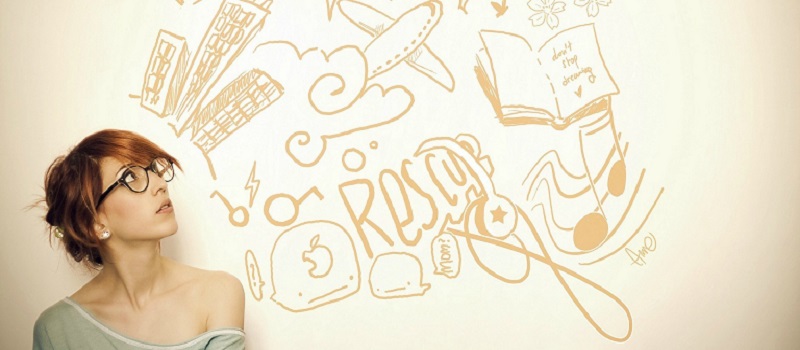 don't
stop
dreaming
Rescue
Mom?
Ame